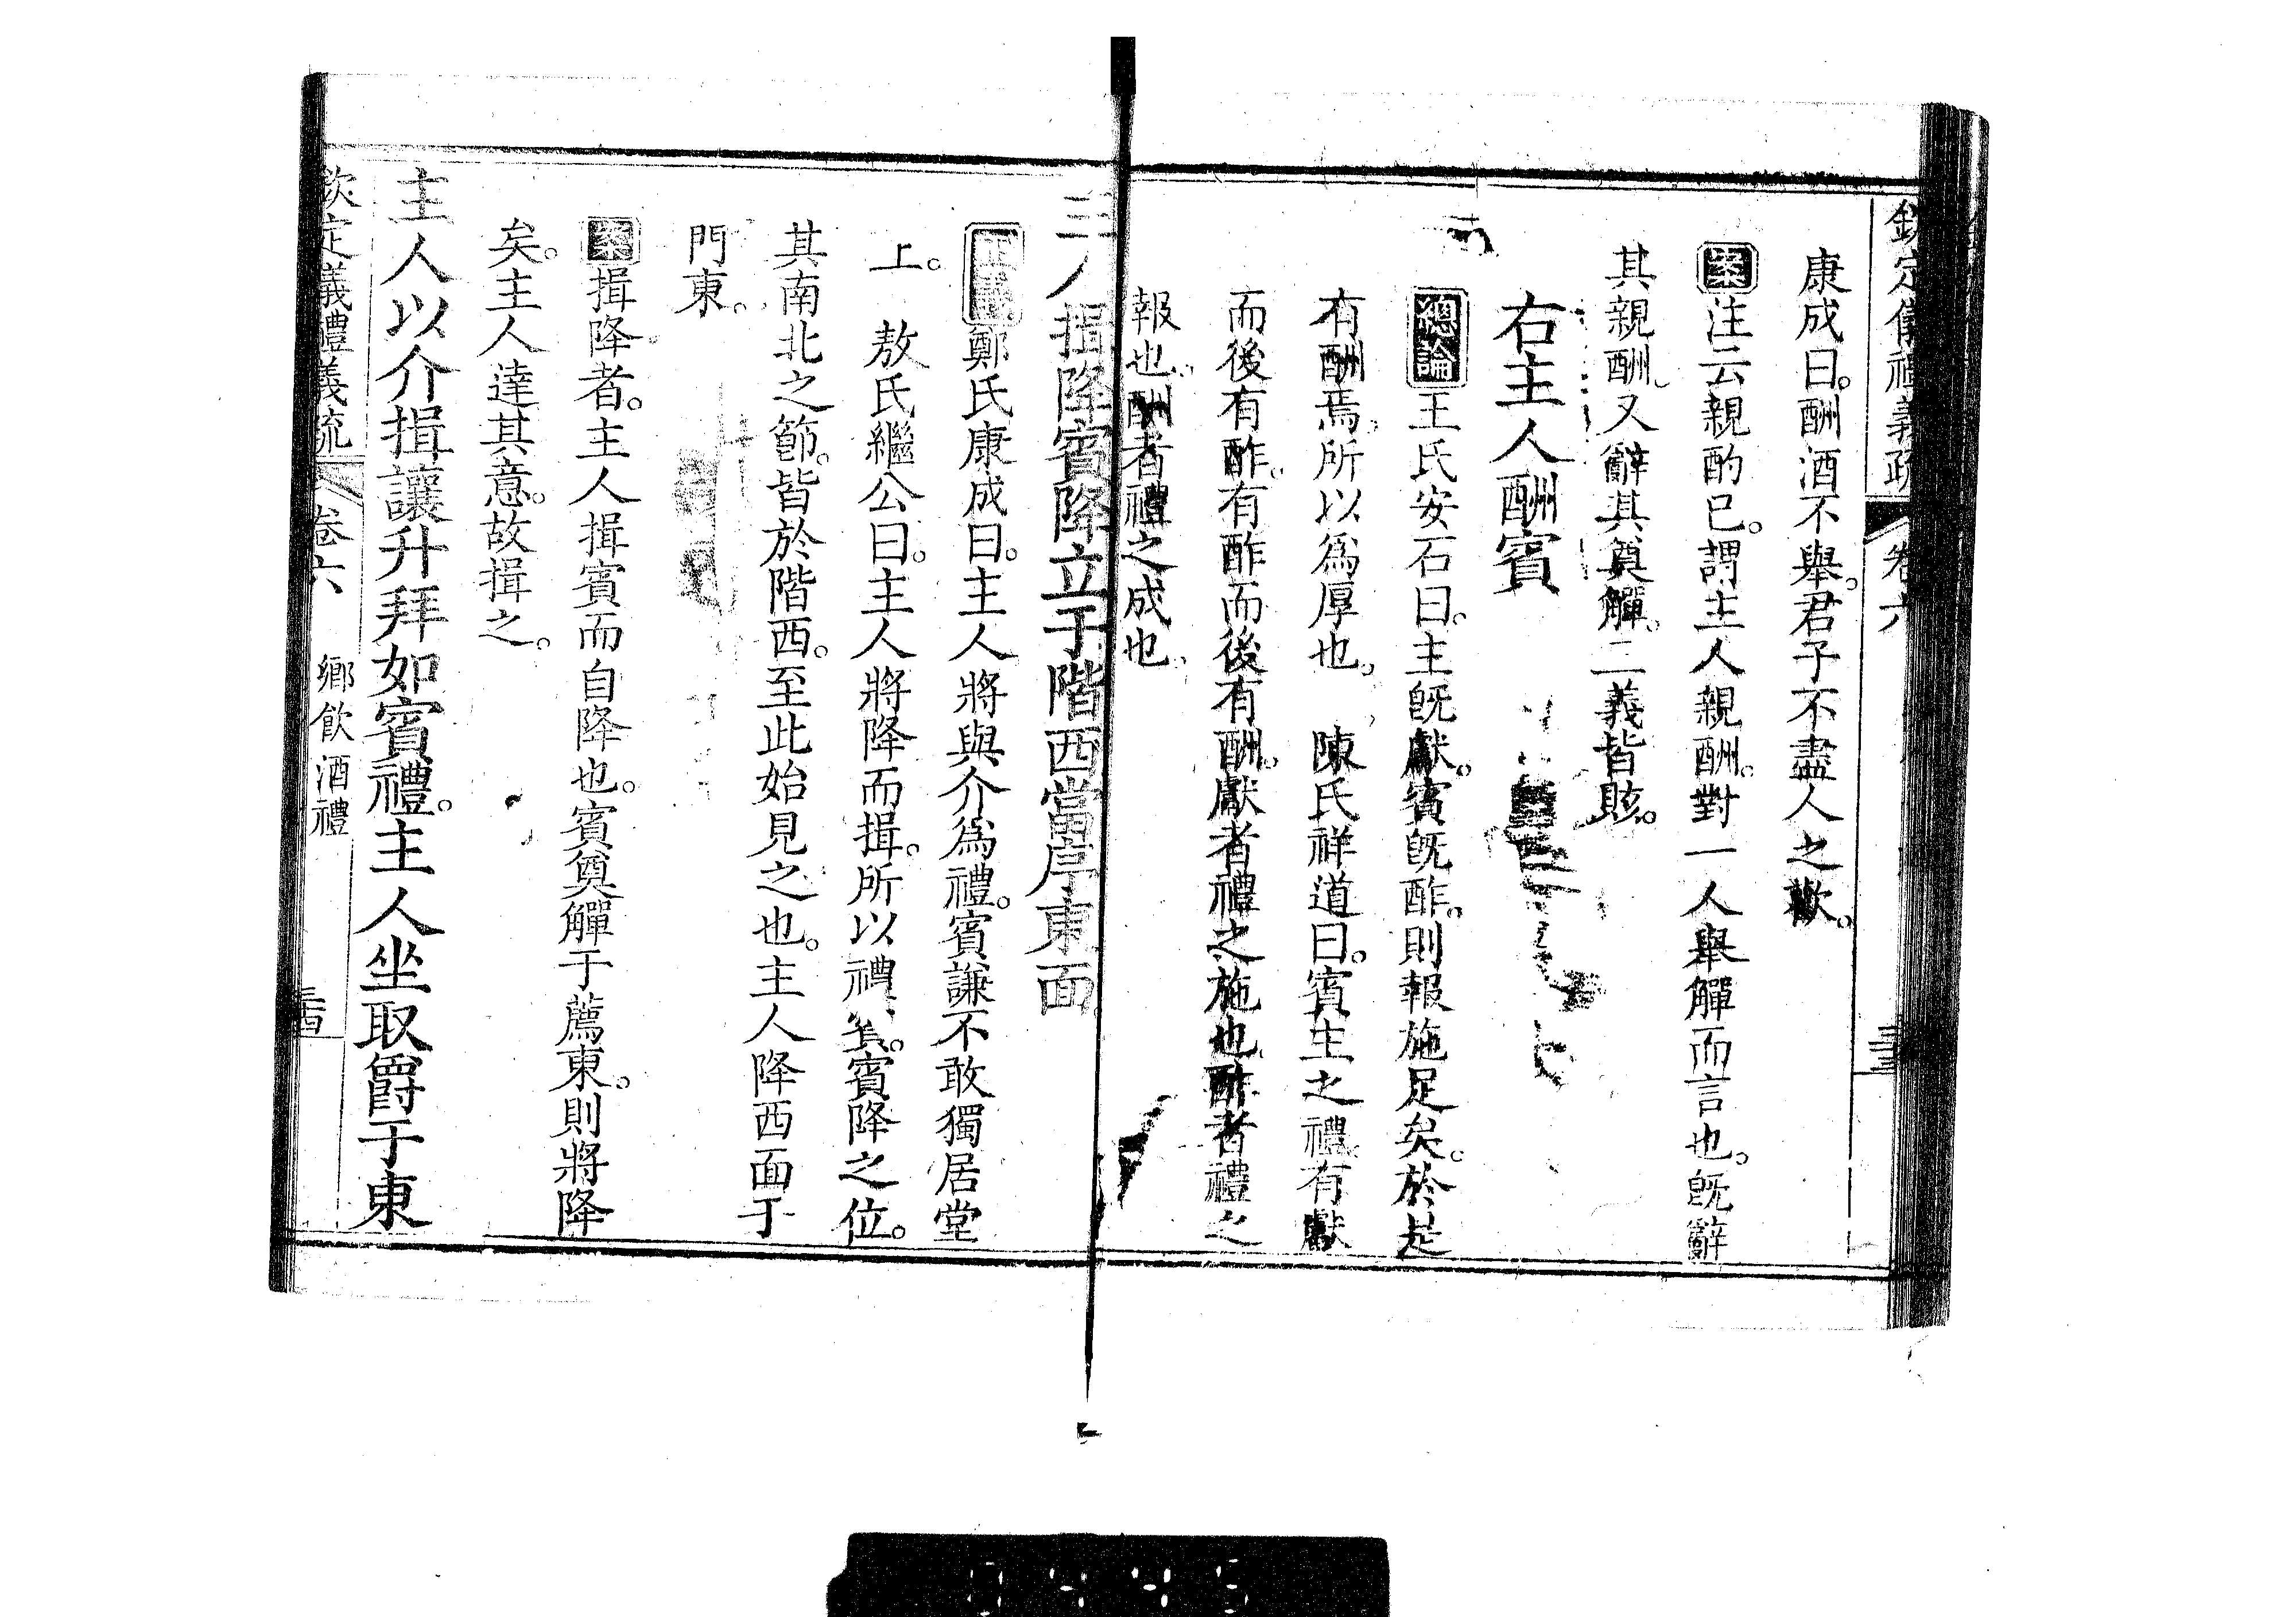 欽定儀禮義疏 卷六
康成曰。酬酒不舉。君子不盡人之歡。
案注云親酌已。謂主人親酬。對一人舉觶而言也。旣辭
其親酬。又辭其奠觶。二義皆賅。
右主人酬賓
總論王氏安石曰。主旣獻。賓旣酢。則報施足矣。於是
有酬焉。所以為厚也。 陳氏祥道曰。賓主之禮。有獻
而後有酢。有酢而後有酬。獻者禮之施也。酢者禮之
報也。酬者禮之成也。
主人揖降賓降立于階西當序東面
正義鄭氏康成曰。主人將與介為禮。賓謙不敢獨居堂
上。 敖氏繼公曰。主人將降而揖。所以禮賓。賓降之位。
其南北之節。皆於階西。至此始見之也。主人降西面于
門東。
案揖降者。主人揖賓而自降也。賓奠觶于薦東。則將降
矣。主人達其意。故揖之。
主人以介揖讓升拜如賓禮。主人坐取爵于東
欽定儀禮義疏 卷六 鄉飲酒禮